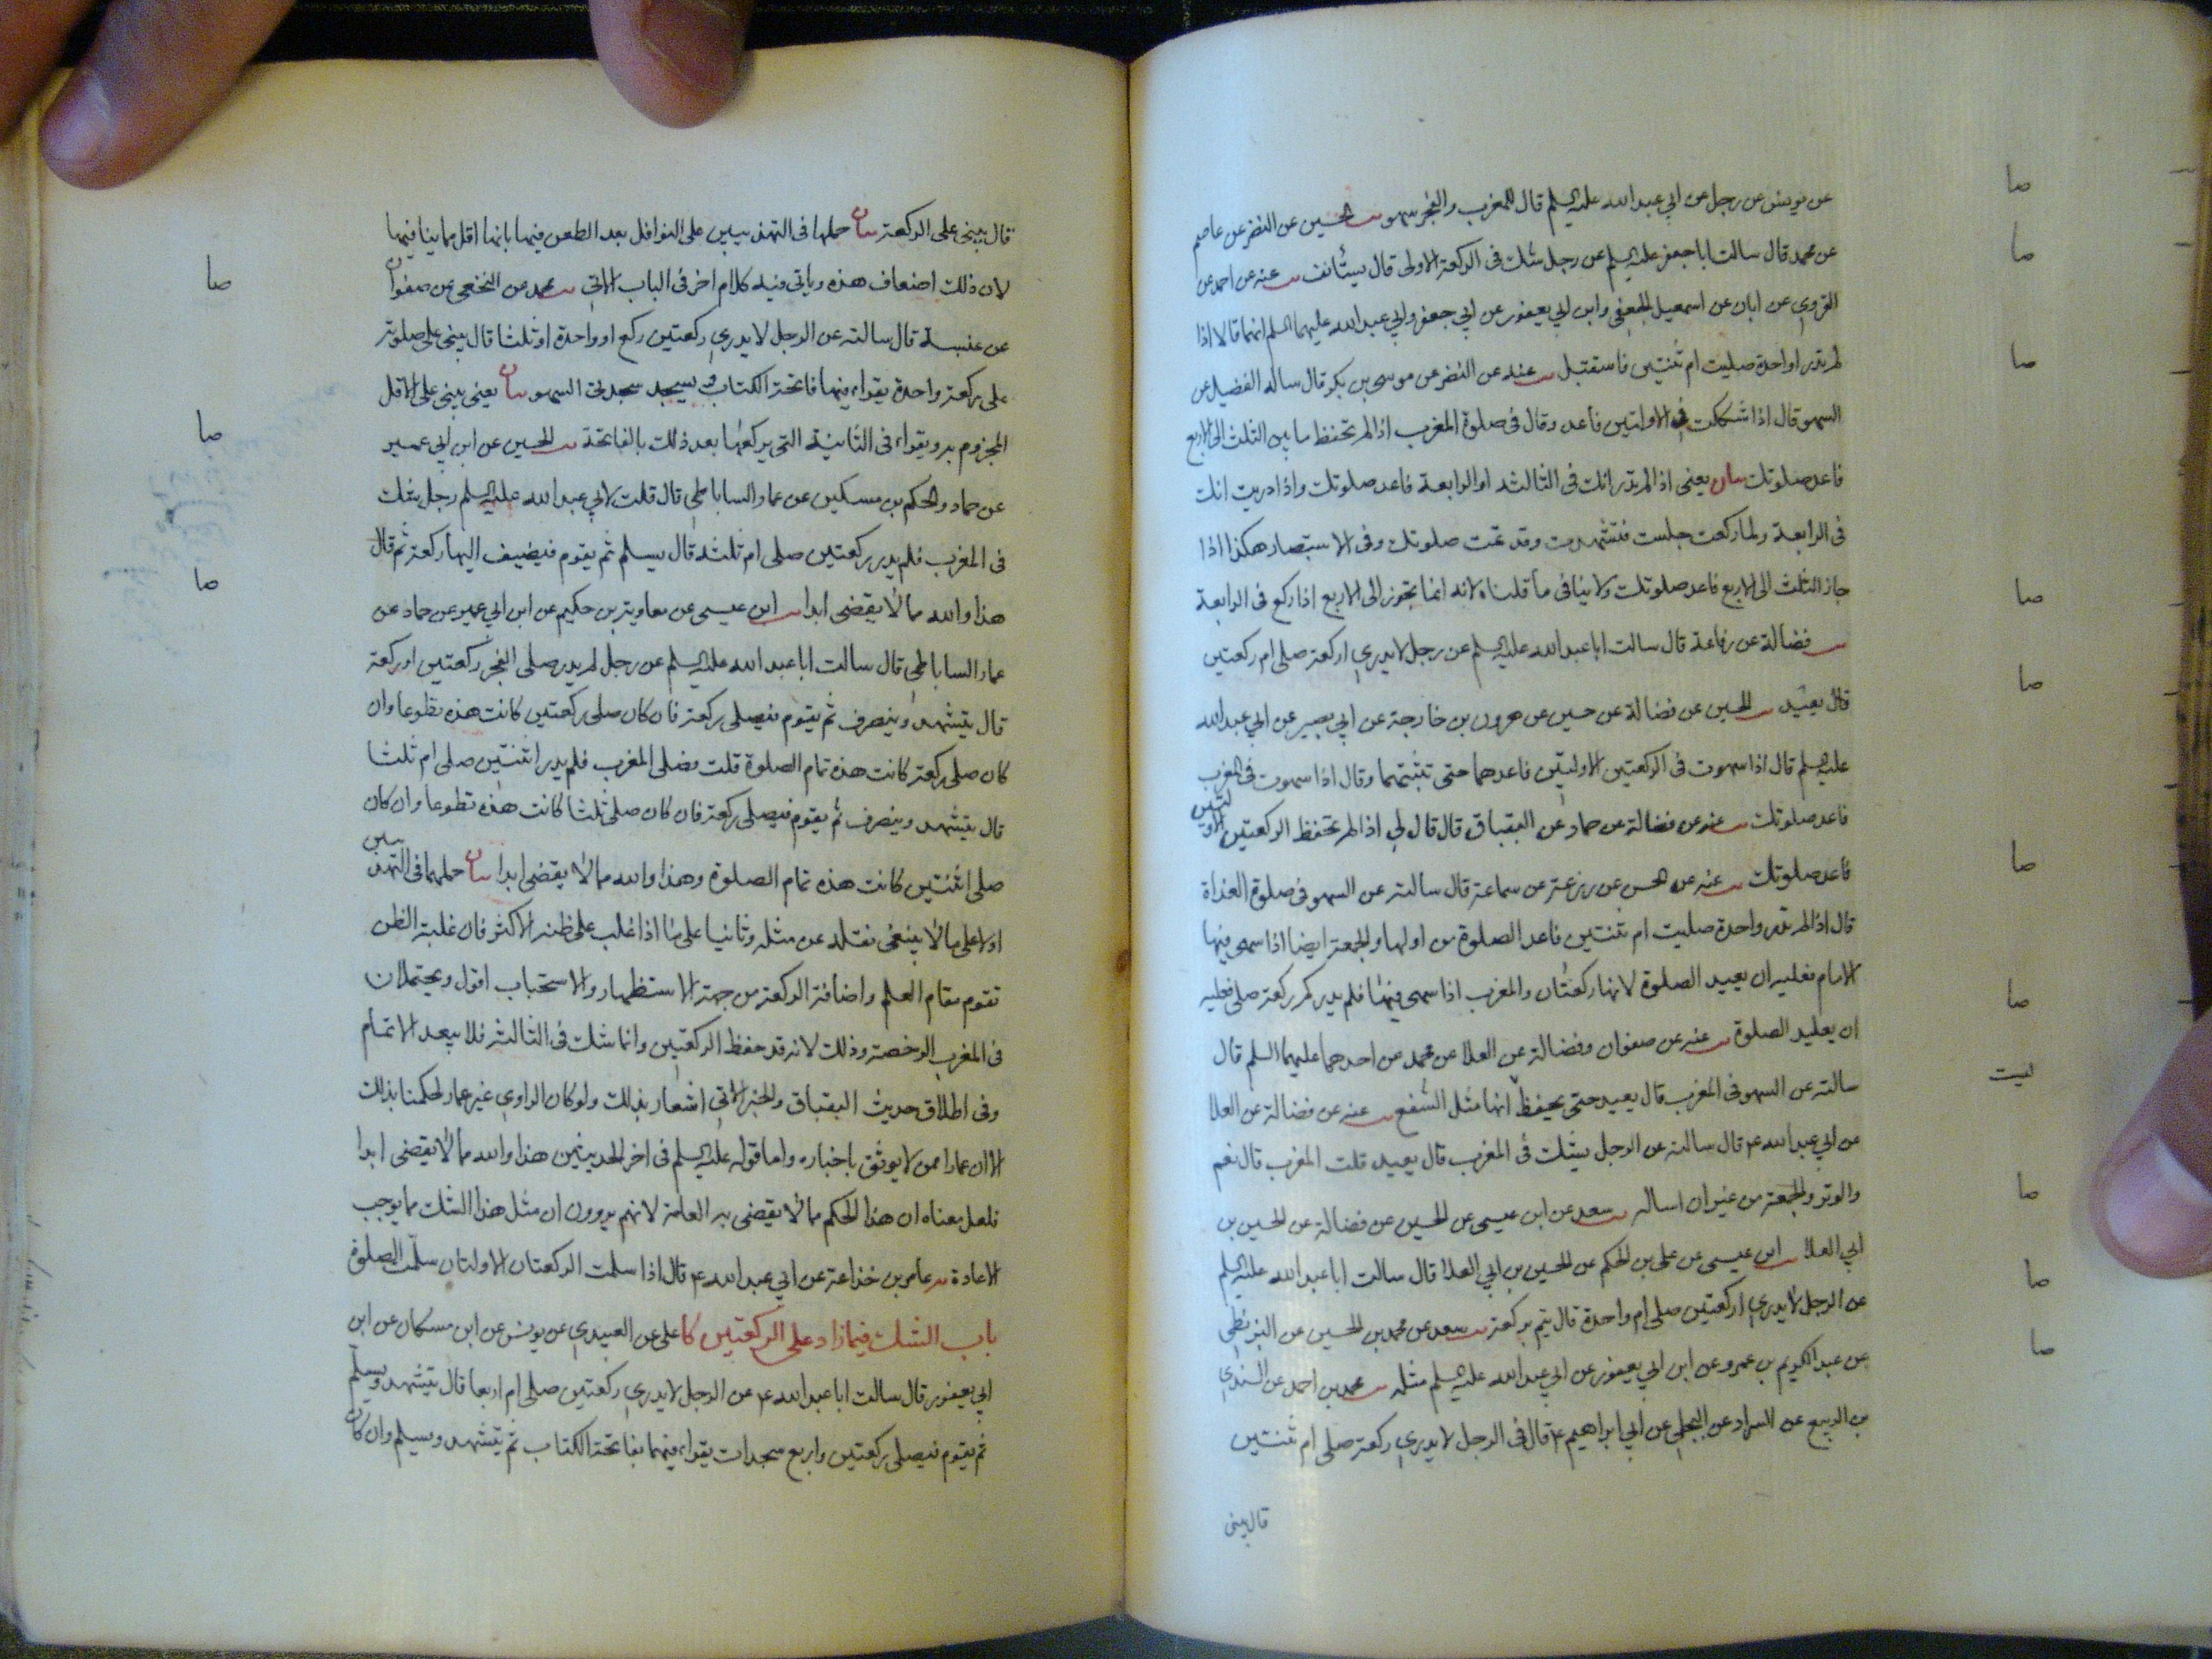 عن يونس عن رجل عن ابي عبد الله عليه السلم قال للمغرب والفجر سهو الحسين عن النضر عن عاصم
عن محمد قال سالت ابا جعفر عليه السلم عن رجل شك في الركعة الاولى قال يستأنف عنه عن احمد عن
القروي عن ابان عن اسمعيل الجعفي وابن ابي يعفور عن ابي جعفر وابي عبد الله عليهما السلم انهما قالا اذا
لم تدر اواحدة صليت ام ثنتين فاستقبل عنه عن النضر عن موسى بن بكر قال ساله الفضيل عن
السهو قال اذا شككت في الاولتين فأعد وقال في صلوة المغرب اذا لم تحفظ ما بين الثلث الى الاربع
فاعد صلوتك بيان يعنى اذا لم تدر انك في الثالثة او الرابعة فاعد صلوتك واذا دريت انك
في الرابعة ولما ركعت جلست فتشهدت وقد تمت صلوتك وفى الاستبصار هكذا اذا
جاز الثلث الى الاربع فاعد صلوتك ولا ينافي ما قلناه لانه انما يجوز الى الاربع اذا ركع في الرابعة
فضالة عن رفاعة قال سالت ابا عبد الله عليه السلم عن رجل لا يدري اركعة صلى ام ركعتين
قال يعيد الحسين عن فضالة عن حسين عن هرون بن خارجة عن ابي بصير عن ابي عبد الله
عليه السلم قال اذا سهوت في الركعتين الاولتين فاعدهما حتى تثبتهما وقال اذا سهوت في المغرب
فاعد صلوتك عنه عن فضالة عن حماد عن البقباق قال قال لي اذا لم تحفظ الركعتين الاولتين
فاعد صلوتك عنه عن الحسن عن زرعة عن سماعة قال سالته عن السهو في صلوة الغداة
قال اذا لم تدر واحدة صليت ام ثنتين فاعد الصلوة من اولها والجمعة ايضا اذا سهى فيها
الامام فعليه ان يعيد الصلوة لانها ركعتان والمغرب اذا سهى فيها فلم يدر كم ركعة صلى فعليه
ان يعيد الصلوة عنه عن صفوان وفضالة عن العلا عن محمد عن احدهما عليهما السلم قال
سالته عن السهو في المغرب قال يعيد حتى يحفظ انها مثل الشفع عنه عن فضالة عن العلا
عن ابي عبد الله ع قال سالته عن الرجل يشك في المغرب قال يعيد قلت المغرب قال نعم
والوتر والجمعة من غير ان اساله سعد عن ابن عيسى عن الحسين عن فضالة عن الحسين بن
ابي العلا ابن عيسى عن على بن الحكم عن الحسين بن ابي العلا قال سالت ابا عبد الله عليه السلم
عن الرجل لا يدري اركعتين صلى ام واحدة قال يتم بركعة سعد عن محمد بن الحسين عن البزنطي
عن عبد الكريم بن عمرو عن ابن ابي يعفور عن ابي عبد الله عليه السلم مثله محمد بن احمد عن السندي
بن الربيع عن السراد عن البجلي عن ابي ابراهيم ع قال في الرجل لا يدري ركعة صلى ام ثنتين
قال يبنى
صا
صا
صا
صا
صا
صا
صا
ليت
صا
صا
صا
قال يبنى على الركعة بيان حملها في التهذيبين على النوافل بعد الطعن فيها بانها اقل مما ينافيها
لان ذلك اضعاف هذه وياتي فيه كلام اخر في الباب الاتي محمد عن النخعي عن صفوان
عن عنبسة قال سالته عن الرجل لا يدري ركعتين ركع او واحدة او ثلثا قال يبنى على صلوته
على ركعة واحدة يقرأ فيها فاتحة الكتاب ويسجد سجدتي السهو بيان يعنى يبنى على الاقل
المجزوم به ويقرأ في الثانية التي يركعها بعد ذلك بالفاتحة الحسين عن ابن ابي عمير
عن حماد والحكم بن مسكين عن عمار الساباطي قال قلت لابي عبد الله عليه السلم رجل شك
في المغرب فلم يدر ركعتين صلى ام ثلثة قال يسلم ثم يقوم فيضيف اليها ركعة ثم قال
هذا والله مما لا يقضى ابدا ابن عيسى عن معاوية بن حكيم عن ابن ابي عمير عن حماد عن
عمار الساباطي قال سالت ابا عبد الله عليه السلم عن رجل لم يدر صلى الفجر ركعتين او ركعة
قال يتشهد وينصرف ثم يقوم فيصلى ركعة فان كان صلى ركعتين كانت هذه تطوعا وان
كان صلى ركعة كانت هذه تمام الصلوة قلت فصلى المغرب فلم يدر اثنتين صلى ام ثلثا
قال يتشهد وينصرف ثم يقوم فيصلى ركعة فان كان صلى ثلثا كانت هذه تطوعا وان كان
صلى اثنتين كانت هذه تمام الصلوة وهذا والله مما لا يقضى ابدا بيان حملهما في التهذيبين
اولا على ما لا ينبغى نقله عن مثله وثانيا على ما اذا غلب على ظنه الاكثر فان غلبة الظن
تقوم مقام العلم واضافة الركعة من جهة الاستظهار والاستحباب اقول ويحتملان
في المغرب الرخصة وذلك لانه قد حفظ الركعتين وانما شك في الثالثة فلا يبعد الاتمام
وفى اطلاق حديث البقباق والخبر الاتي اشعار بذلك ولو كان الراوي غير عمار لحكمنا بذلك
الا ان عمارا ممن لا يوثق باخباره واما قوله عليه السلم في اخر الحديثين هذا والله مما لا يقضى ابدا
فلعل معناه ان هذا الحكم مما لا يقضى به العامة لانهم يروون ان مثل هذا الشك مما يوجب
الاعادة عامر بن خذاعة عن ابي عبد الله ع قال اذا سلمت الركعتان الاولتان سلمت الصلوة
باب الشك فيما زاد على الركعتين كا على عن العبيدي عن يونس عن ابن مسكان عن ابن
ابي يعفور قال سالت ابا عبد الله ع عن الرجل لا يدري ركعتين صلى ام اربعا قال يتشهد ويسلم
ثم يقوم فيصلى ركعتين واربع سجدات يقرأ فيهما بفاتحة الكتاب ثم يتشهد ويسلم وان كان
صا
صا
صا